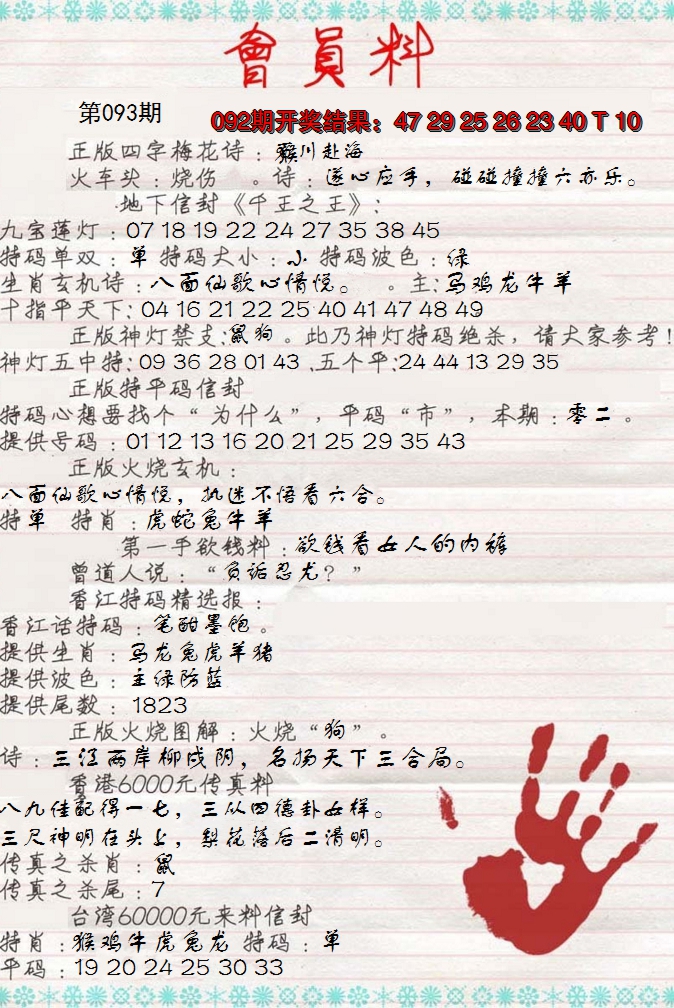 會員料
第093期
092期开奖结果：47 29 25 26 23 40 T 10
正版四字梅花诗：川赴海
火车头：烧伤 。诗：遂心应手，碰碰撞撞六亦乐。
地下信封《千王之王》：
九宝莲灯：07 18 19 22 24 27 35 38 45
特码单双：单 特码大小：小 特码波色：绿
生肖玄机诗：八面仙歌心情悦。 。主：马鸡龙牛羊
十指平天下：04 16 21 22 25 40 41 47 48 49
正版神灯禁支：鼠狗。此乃神灯特码绝杀，请大家参考！
神灯五中特：09 36 28 01 43 .五个平：24 44 13 29 35
正版特平码信封
特码心想要找个“为什么”，平码“市”，本期：零二。
提供号码：01 12 13 16 20 21 25 29 35 43
正版火烧玄机：
八面仙歌心情悦，执迷不悟看六合。
特单 特肖：虎蛇兔牛羊
第一手欲钱料：欲钱看女人的内裤
曾道人说：“负诟忍尤？”
香江特码精选报：
香江话特码：笔酣墨饱。
提供生肖：马龙兔虎羊猪
提供波色：主绿防蓝
提供尾数：1823
正版火烧图解：火烧“狗”。
诗：三江两岸柳成阴，名扬天下三合局。
香港6000元传真料
八九佳配得一七，三从四德卦女样。
三尺神明在头上，梨花落后二清明。
传真之杀肖：鼠
传真之杀尾：7
台湾60000元来料信封
特肖：猴鸡牛虎兔龙 特码：单
平码：19 20 24 25 30 33